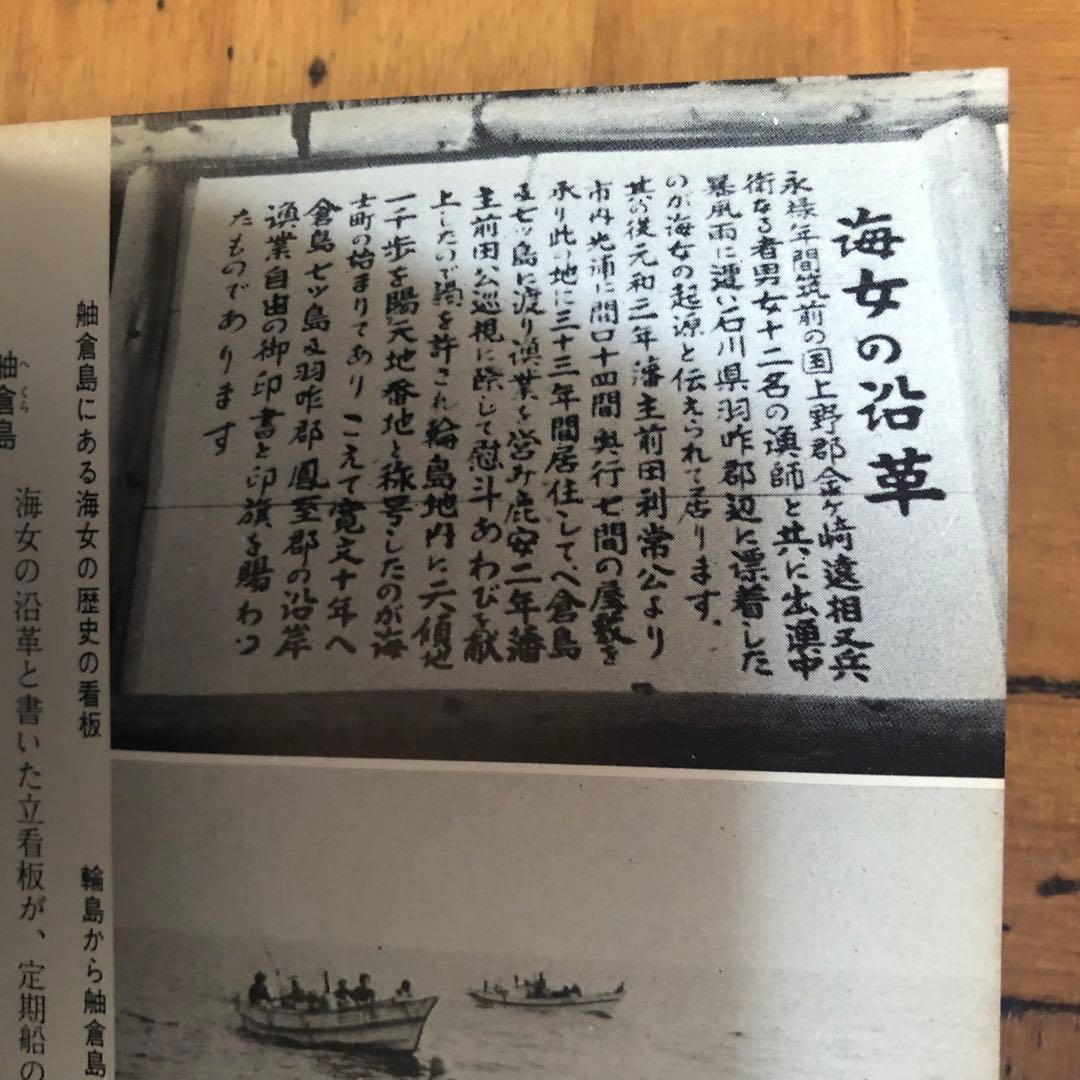 海女の沿革
永禄年間筑前の国上野郡金ヶ崎遠相又兵
衛なる者男女十二名の漁師と共に出漁中
暴風雨に遭い石川県羽咋郡辺に漂着した
のが海女の起源と伝えられて居ります。
其の後元和三年藩主前田利常公より
市内光浦に間口十四間奥行七間の屋敷を
承り此の地に三十三年間居住して、へ倉島
及七ッ島に渡り漁業を営み慶安二年藩
主前田公巡視に際して慰斗あわびを献
上したので潟を許され輪島地内に
一千歩を賜天地番地と称号したのが海
士町の始まりであり こえて寛文十年へ
倉島七ッ島及羽咋郡鳳至郡の沿岸
漁業自由の御印書と印旗を賜わつ
たものであります
舳倉島にある海女の歴史の看板
輪島から舳倉島
へくら
舳倉島
海女の沿革と書いた立看板が、定期船の